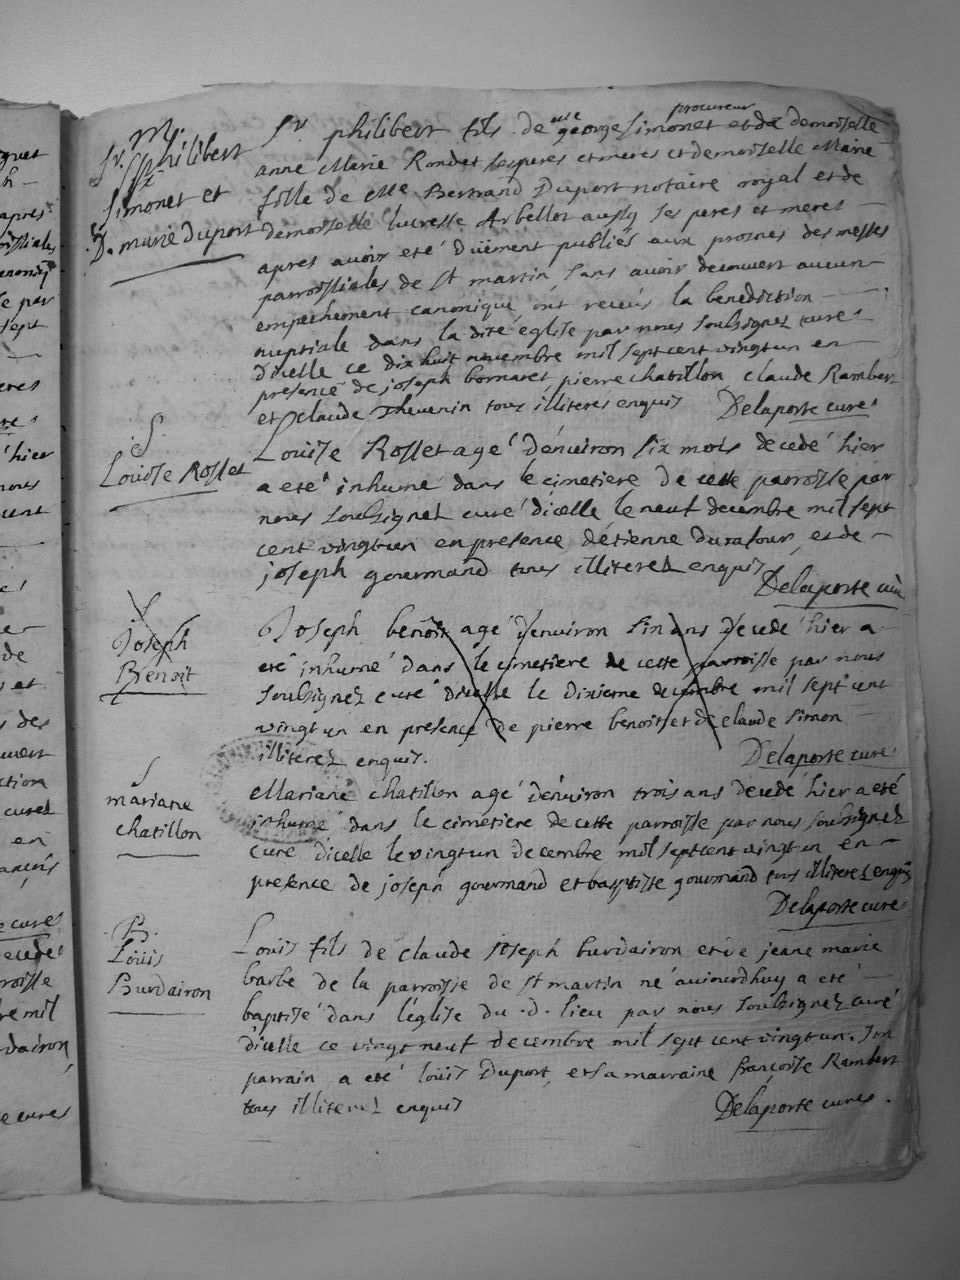 procureur
Sr. philibert fils de mre george Simonet et de demoiselle
anne Marie Rondet ses peres et meres et demoiselle Marie
fille de Me Bertrand Duport notaire royal et de
demoiselle lucresse Arbellot aussy ses peres et meres
apres avoir eté düement publiés aux prosnes des messes
parroissiales de St martin sans avoir decouvert aucun
empechement canonique, ont receus la benediction
nuptiale dans la dite église par nous soubsignez cure
dicelle ce dix huit novembre mil sept cent vingt un en
presence de joseph bornaret, pierre chatillon, claude Rambert
et Claude Thevenin tous illiteres enquis Delaporte curé
M.
Sr. philibert
Simonet et
D. marie duport
S.
Louise Rosset
Louise Rosset agé d'environ six mois decedé hier
a eté inhumé dans le cimetiere de cette parroisse par
nous soubsignez curé dicelle le neuf decembre mil sept
cent vingt un en presence d'étienne durafour, et de
joseph gourmand tous illiterez enquis
Delaporte curé
Joseph
Benoit
Joseph benoit agé d'environ sin ans decedé hier a
eté inhumé dans le cimetiere de cette parroisse par nous
soubsignez curé dicelle le dixieme decembre mil sept cent
vingt un en presence de pierre benoit et de claude simon
illiterez enquis.
Delaporte curé
S
mariane
chatillon
Mariane chatillon agé d'environ trois ans decedé hier a eté
inhumé dans le cimetiere de cette parroisse par nous soubsignez
curé dicelle le vingt un decembre mil sept cent vingt un en
presence de joseph gourmand et baptiste gourmand tous illiterez enquis
Delaporte curé
B.
Loüis
Burdairon
Louis fils de claude joseph burdairon et de jeane marie
barbe de la parroisse de St martin né aujourdhuy a eté
baptisé dans l'église du .d. lieu par nous soubsignez curé
dicelle ce vingt neuf decembre mil sept cent vingt un. son
parrain a eté loüis Duport, et sa marraine françoise Rambert
tous illiterez enquis
Delaporte curé.